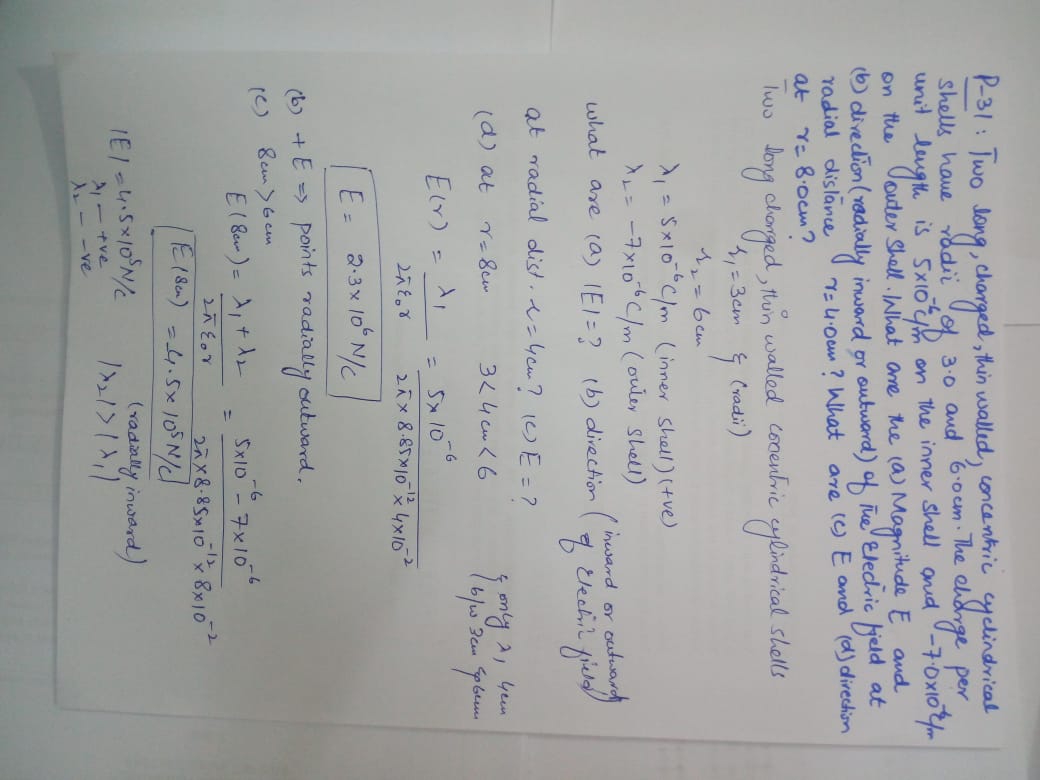 P-31: Two long, charged, thin walled, concentric cylindrical
shells have radii of 3.0 and 6.0cm. The charge per
unit length is 5x10⁻⁶ C/m on the inner shell and -7.0x10⁻⁶ C/m
on the outer shell. What are the (a) Magnitude E and
(b) direction (radially inward or outward) of the Electric field at
radial distance r=4.0cm? What are (c) E and (d) direction
at r=8.0cm?
Two long charged, thin walled concentric cylindrical shells
r₁=3cm & (radii)
r₂=6cm
λ₁ = 5x10⁻⁶ C/m (inner shell)(+ve)
λ₂ = -7x10⁻⁶ C/m (outer shell)
what are (a) |E|=? (b) direction (inward or outward
of Electric field)
at radial dist. r=4cm? (c) E=?
(a) at r=8cm 3<4cm<6 {only λ₁ 4cm
(b/w 3cm & 6cm
E(r) = λ₁ / 2πε₀r = 5x10⁻⁶ / 2πx8.85x10⁻¹²x4x10⁻²
E = 2.3x10⁶ N/C
(b) +E => points radially outward.
(c) 8cm>6cm
E(8cm) = λ₁+λ₂ / 2πε₀r = 5x10⁻⁶-7x10⁻⁶ / 2πx8.85x10⁻¹²x8x10⁻²
E(8cm) = -4.5x10⁵ N/C
(radially inward)
|E|=4.5x10⁵ N/C |λ₂|>|λ₁|
λ₁ - +ve
λ₂ - -ve